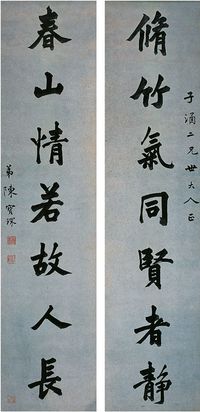 子涵二兄世大人正
脩竹氣同賢者靜
春山情若故人長
弟陳寶琛